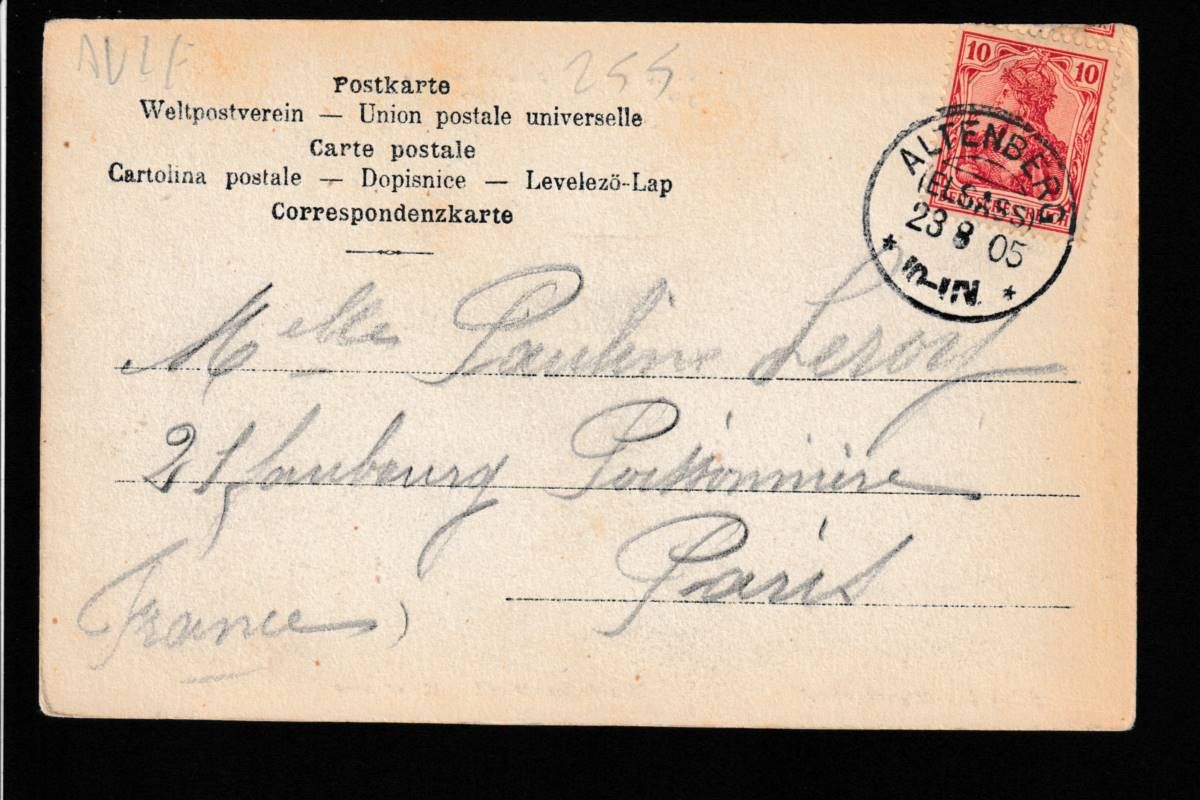 255
Postkarte
Weltpostverein — Union postale universelle
Carte postale
Cartolina postale — Dopisnice — Levelező-Lap
Correspondenzkarte
10 10
ALTENBERG
(ELSASS)
23 8 05
Melle Pauline Leroy
21 faubourg Poissonnière
Paris
France)